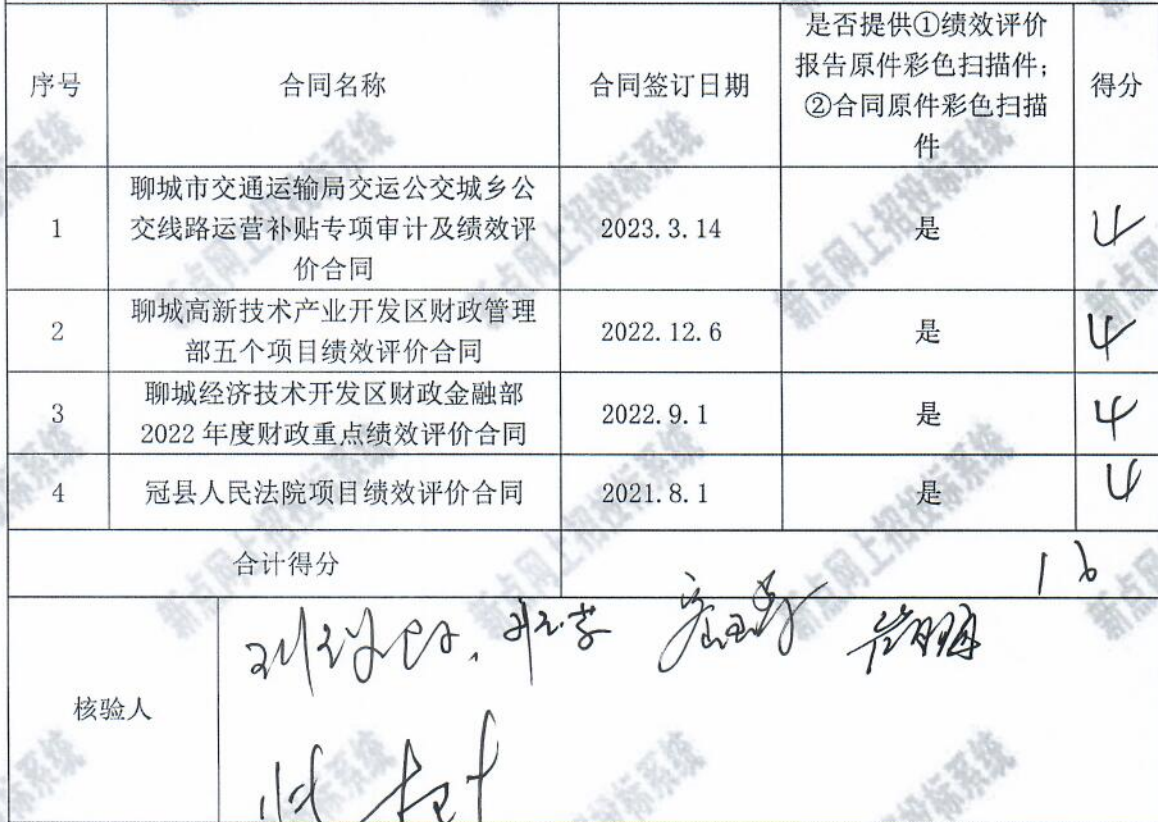 序号 合同名称 合同签订日期 是否提供①绩效评价
报告原件彩色扫描件;
②合同原件彩色扫描
件 得分
1 聊城市交通运输局交运公交城乡公
交线路运营补贴专项审计及绩效评
价合同 2023.3.14 是 4
2 聊城高新技术产业开发区财政管理
部五个项目绩效评价合同 2022.12.6 是 4
3 聊城经济技术开发区财政金融部
2022 年度财政重点绩效评价合同 2022.9.1 是 4
4 冠县人民法院项目绩效评价合同 2021.8.1 是 4
合计得分 16
核验人
新点网上招投标系统